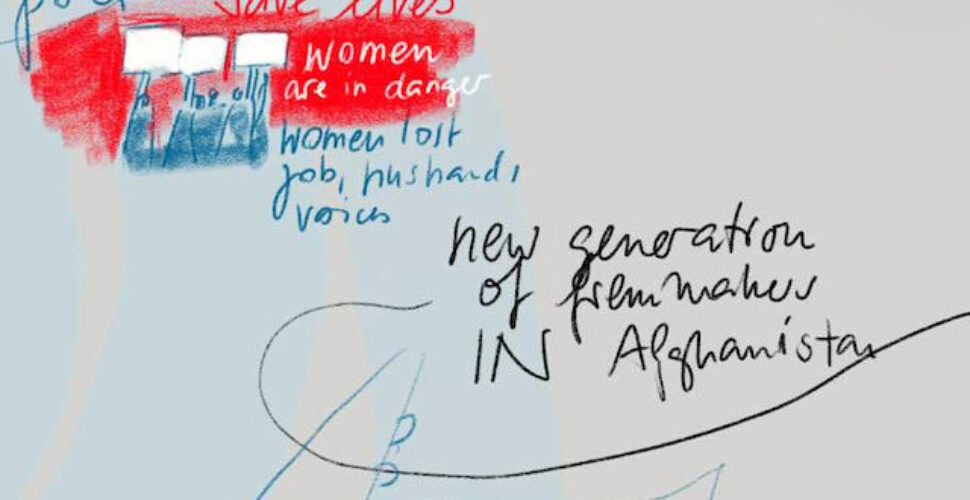 save lives
women
are in danger
women lost
job, husband,
voices
new generation
of filmmakers
IN Afghanistan